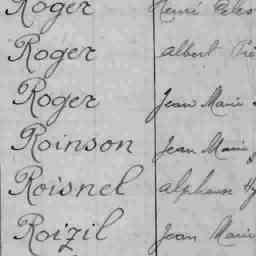 Roger
Roger Albert
Roger Jean Marie
Roinson Jean Marie
Roisnel Alphonse
Roizil Jean Marie